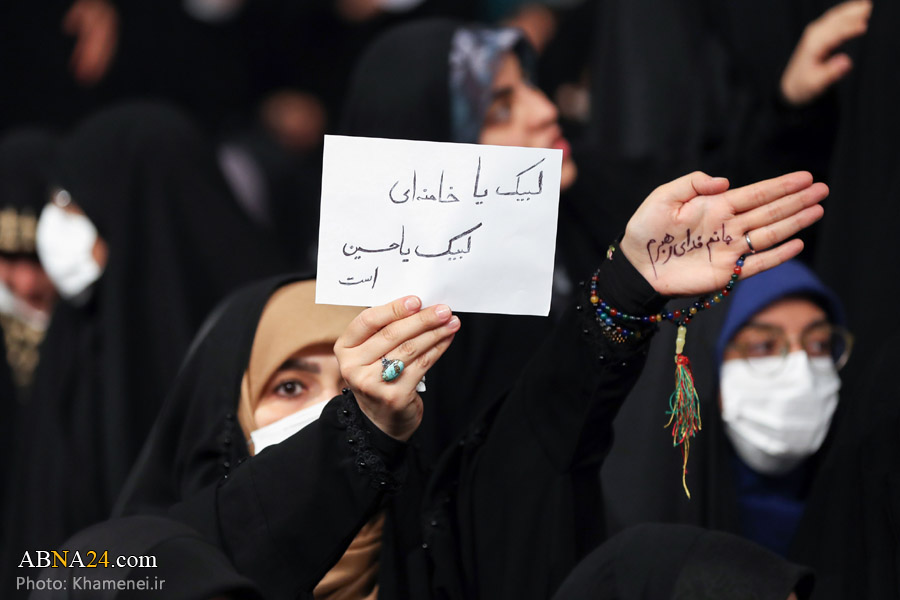 لبیک یا خامنه‌ای
لبیک یا حسین
است
جانم فدای رهبرم
ABNA24.com
Photo: Khamenei.ir